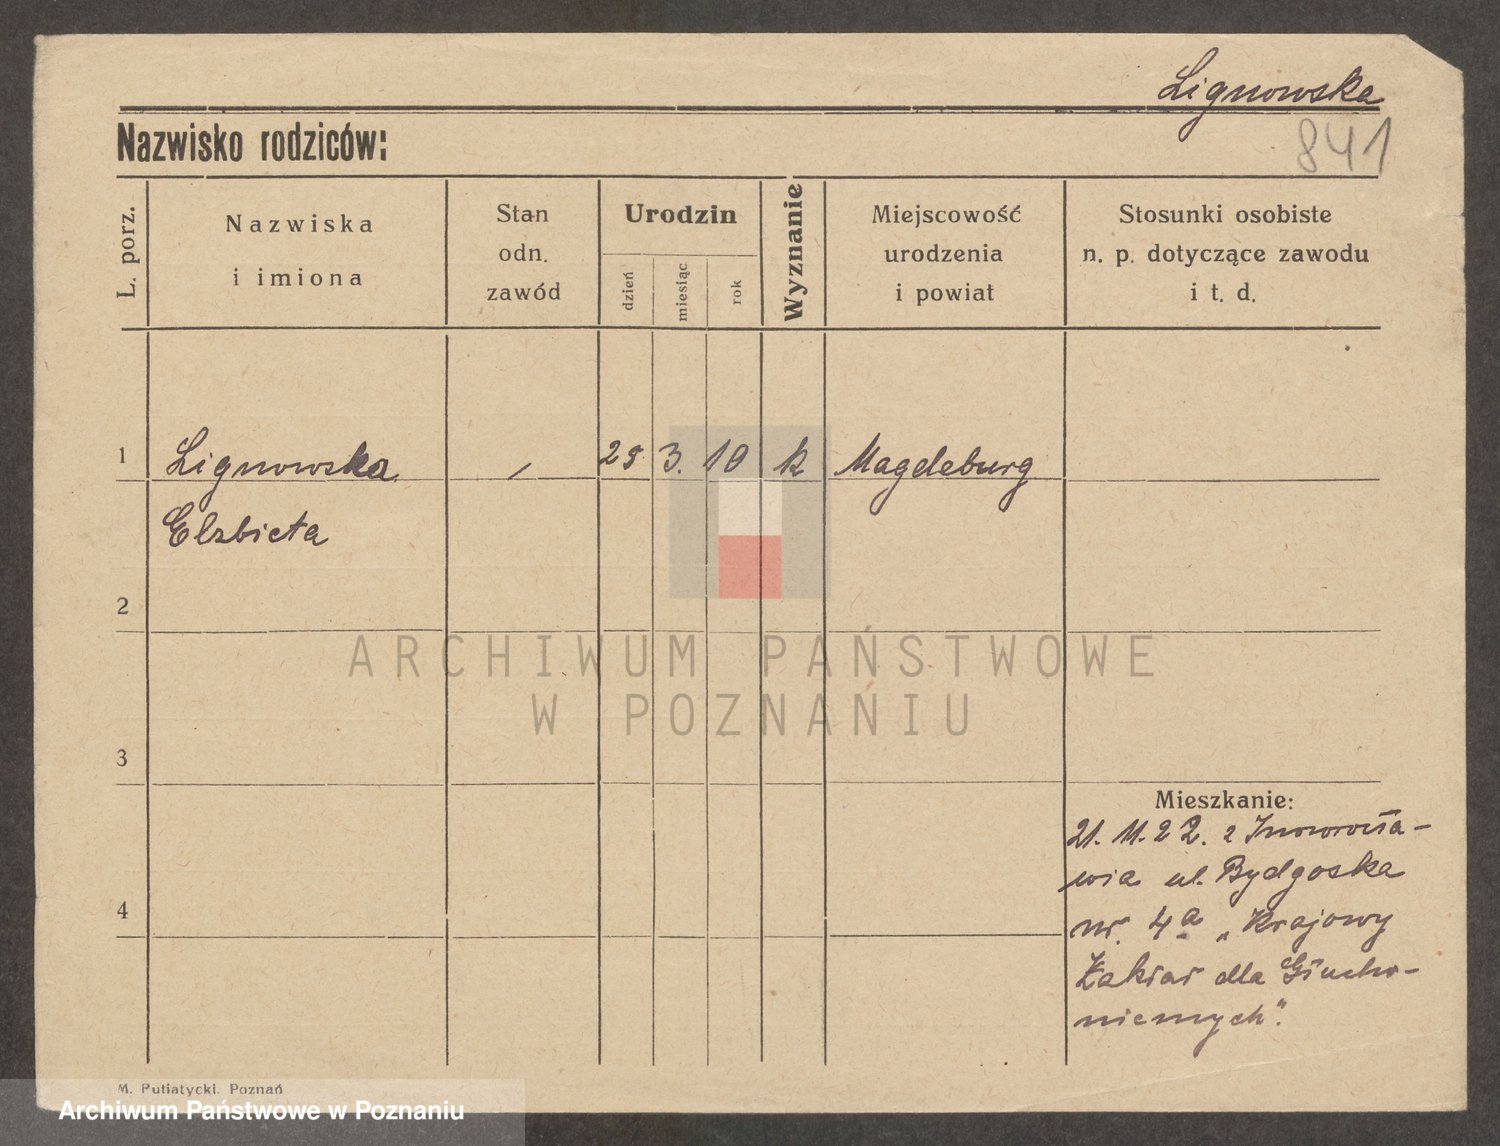 Lignowska
841
Nazwisko rodziców:
L. porz.
Nazwiska
i imiona
Stan
odn.
zawód
Urodzin
dzień
miesiąc
rok
Wyznanie
Miejscowość
urodzenia
i powiat
Stosunki osobiste
n. p. dotyczące zawodu
i t. d.
1 Lignowska - 25 3. 10 k Magdeburg
Elzbieta
2
3
4
Mieszkanie:
21. 11. 22. z Inowrocła-
wia ul. Bydgoska
nr. 4a „Krajowy
Zakład dla Głucho-
niemych".
ARCHIWUM PAŃSTWOWE
W POZNANIU
M. Putiatycki, Poznań
Archiwum Państwowe w Poznaniu